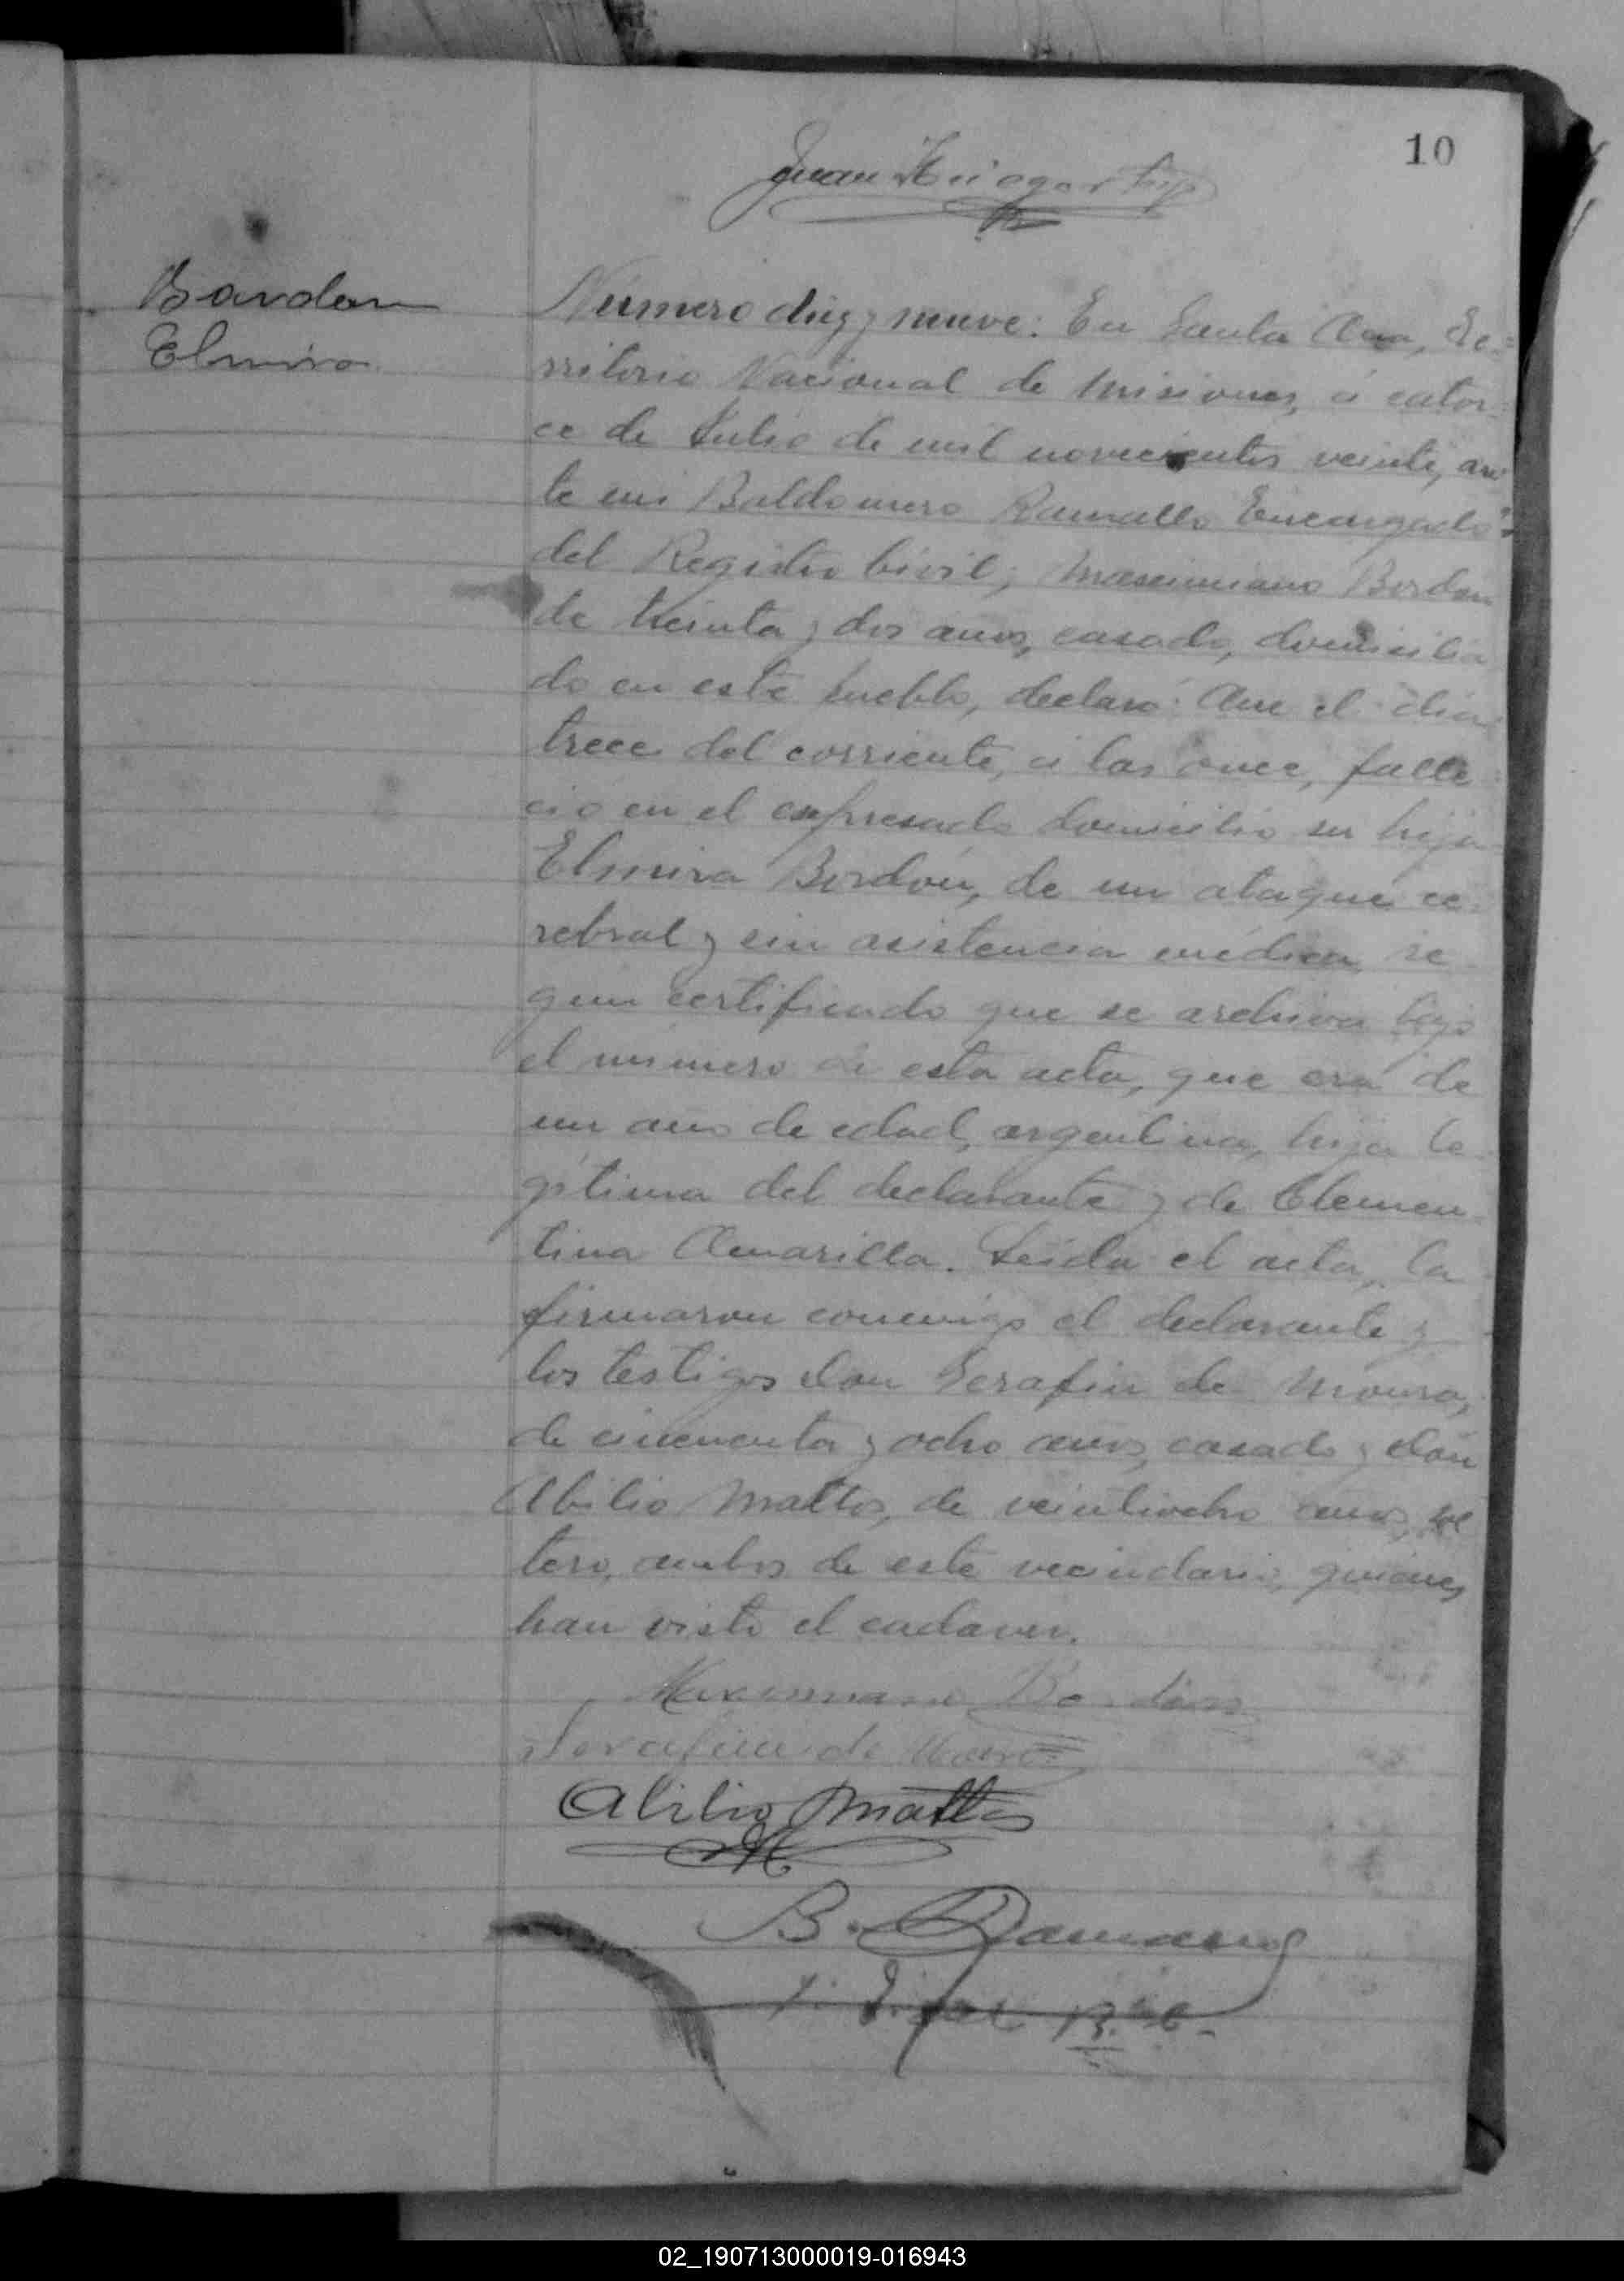 10
Juan
Bordon
Elmira
Número diez y nueve: En Santa Ana, Te-
rritorio Nacional de Misiones, á cator-
ce de Julio de mil novecientos veinte, an
te mi Baldomero Ramallo Encargado
del Registro Civil; Maximiano Bordon
de treinta y dos años, casado, domicilia
do en este pueblo, declaró: Que el dia
trece del corriente, á las once, falle
ció en el expresado domicilio su hija
Elmira Bordón, de un ataque ce-
rebral y sin asistencia médica, se
gun certificado que se archiva bajo
el número de esta acta, que era de
un año de edad, argentina, hija le-
gítima del declarante y de Clemen-
tina Amarilla. Leida el acta, la
firmaron conmigo el declarante y
los testigos don Serafin de Moura,
de cincuenta y ocho años, casado y don
Abilio Mattos, de veintiocho años, sol
tero, ambos de este vecindario, quienes
han visto el cadaver.
Maximiano Bordon
Serafin de Moura
Abilio Mattos
B. Ramallo
02_190713000019-016943